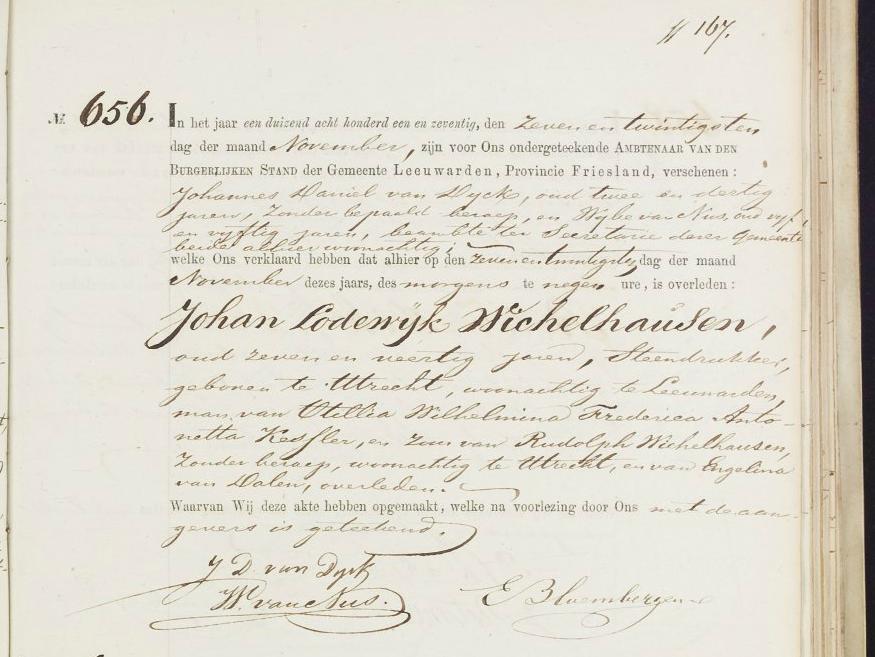 ff 167.
№ 656. In het jaar een duizend acht honderd een en zeventig, den zeven en twintigsten
dag der maand November, zijn voor Ons ondergeteekende AMBTENAAR VAN DEN
BURGERLIJKEN STAND der Gemeente Leeuwarden, Provincie Friesland, verschenen:
Johannes Daniel van Dyck, oud twee en dertig
jaren, zonder bepaald beroep, en Wijbe van Nus, oud vijf
en vijftig jaren, beambte ter Secretarie dezer Gemeente
beide alhier woonachtig;
welke Ons verklaard hebben dat alhier op den zeven en twintigsten dag der maand
November dezes jaars, des morgens te negen ure, is overleden:
Johan Lodewijk Wichelhausen,
oud zeven en veertig jaren, Steendrukker,
geboren te Utrecht, woonachtig te Leeuwarden,
man van Otillia Wilhelmina Frederica Anto-
netta Kessler, en zoon van Rudolph Wichelhausen,
zonder beroep, woonachtig te Utrecht, en van Engelina
van Dalen, overleden.
Waarvan Wij deze akte hebben opgemaakt, welke na voorlezing door Ons met de aan-
gevers is geteekend.
J D van Dyck
W. van Nus.
E Bloembergen